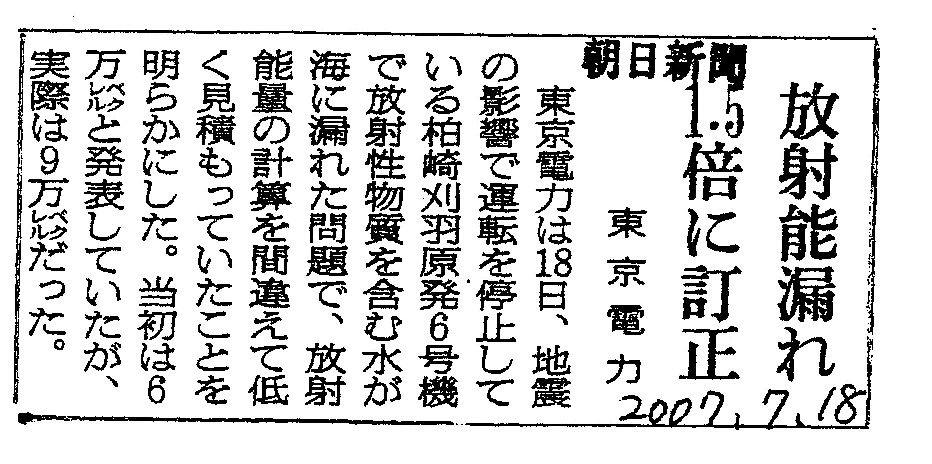 朝日新聞
放射能漏れ
1.5倍に訂正
東京電力
2007.7.18
東京電力は18日、地震
の影響で運転を停止して
いる柏崎刈羽原発6号機
で放射性物質を含む水が
海に漏れた問題で、放射
能量の計算を間違えて低
く見積もっていたことを
明らかにした。当初は6
万ベクレルと発表していたが、
実際は9万ベクレルだった。